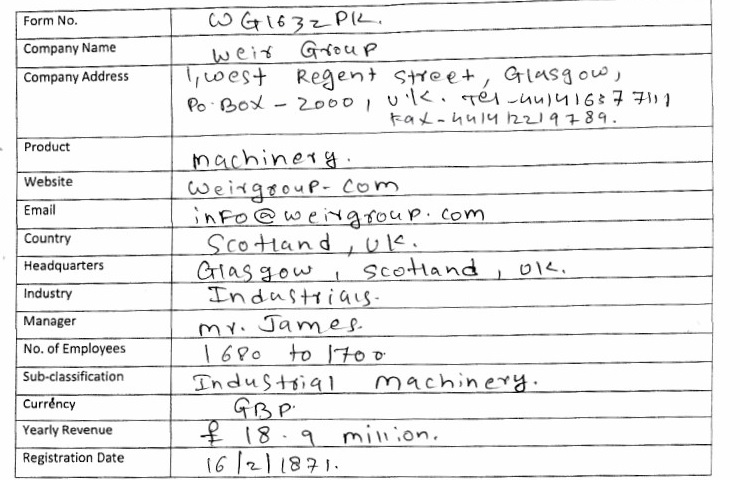 Form No. WG1632PK.
Company Name Weir Group
Company Address 1, West Regent Street, Glasgow,
Po. Box - 2000, U.K. Tel -44141637 7111
Fax - 44141221 9789.
Product machinery.
Website weirgroup-com
Email info@weirgroup.com
Country Scotland, UK.
Headquarters Glasgow, Scotland, UK.
Industry Industrials.
Manager Mr. James.
No. of Employees 1680 to 1700
Sub-classification Industrial machinery.
Currency GBP.
Yearly Revenue £ 18.9 million.
Registration Date 16/2/1871.